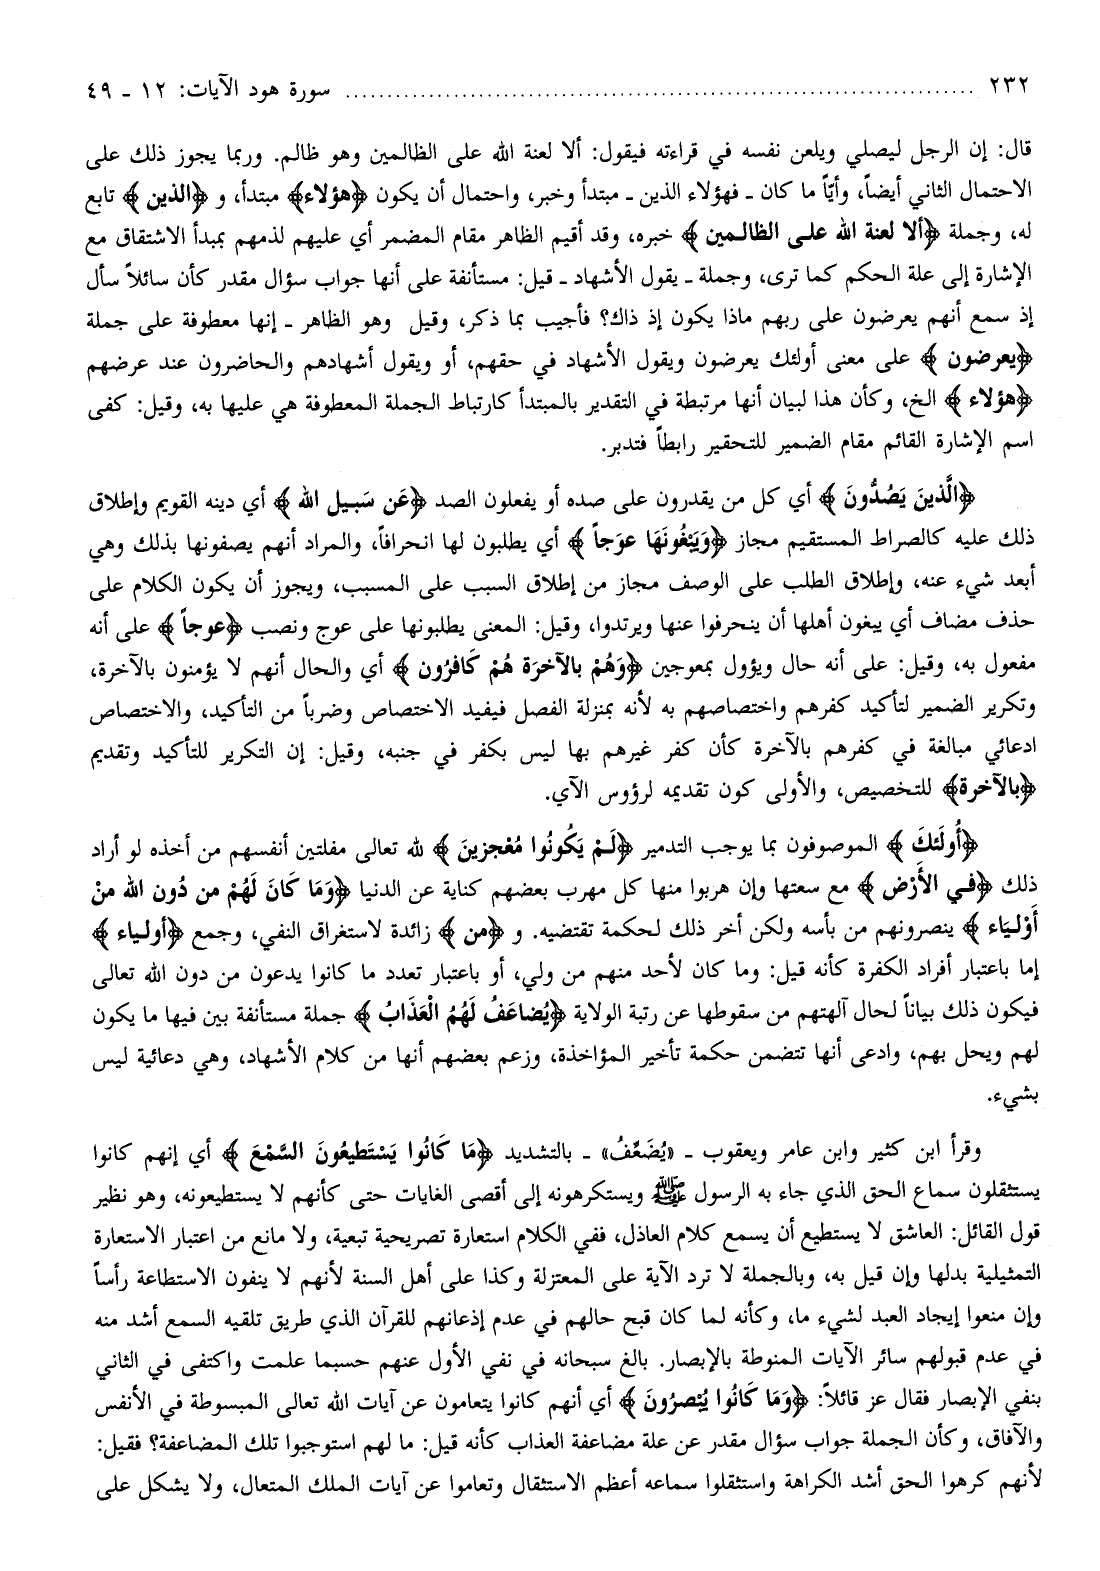 ٢٣٢ ........................................................................... سورة هود الآيات: ١٢ ـ ٤٩
قال: إن الرجل ليصلي ويلعن نفسه في قراءته فيقول: ألا لعنة الله على الظالمين وهو ظالم. وربما يجوز ذلك على
الاحتمال الثاني أيضاً، وأيّاً ما كان ـ فهؤلاء الذين ـ مبتدأ وخبر، واحتمال أن يكون ﴿هؤلاء﴾ مبتدأ، و ﴿الذين﴾ تابع
له، وجملة ﴿ألا لعنة الله على الظالمين﴾ خبره، وقد أقيم الظاهر مقام المضمر أي عليهم لذمهم بمبدأ الاشتقاق مع
الإشارة إلى علة الحكم كما ترى، وجملة ـ يقول الأشهاد ـ قيل: مستأنفة على أنها جواب سؤال مقدر كأن سائلاً سأل
إذ سمع أنهم يعرضون على ربهم ماذا يكون إذ ذاك؟ فأجيب بما ذكر، وقيل وهو الظاهر ـ إنها معطوفة على جملة
﴿يعرضون﴾ على معنى أولئك يعرضون ويقول الأشهاد في حقهم، أو ويقول أشهادهم والحاضرون عند عرضهم
﴿هؤلاء﴾ الخ، وكأن هذا لبيان أنها مرتبطة في التقدير بالمبتدأ كارتباط الجملة المعطوفة هي عليها به، وقيل: كفى
اسم الإشارة القائم مقام الضمير للتحقير رابطاً فتدبر.
﴿الَّذِينَ يَصُدُّونَ﴾ أي كل من يقدرون على صده أو يفعلون الصد ﴿عَن سَبِيل الله﴾ أي دينه القويم وإطلاق
ذلك عليه كالصراط المستقيم مجاز ﴿وَيَبْغُونَهَا عوَجاً﴾ أي يطلبون لها انحرافاً، والمراد أنهم يصفونها بذلك وهي
أبعد شيء عنه، وإطلاق الطلب على الوصف مجاز من إطلاق السبب على المسبب، ويجوز أن يكون الكلام على
حذف مضاف أي يبغون أهلها أن ينحرفوا عنها ويرتدوا، وقيل: المعنى يطلبونها على عوج ونصب ﴿عوجاً﴾ على أنه
مفعول به، وقيل: على أنه حال ويؤول بمعوجين ﴿وَهُمْ بالآخرَة هُمْ كَافرُون﴾ أي والحال أنهم لا يؤمنون بالآخرة،
وتكرير الضمير لتأكيد كفرهم واختصاصهم به لأنه بمنزلة الفصل فيفيد الاختصاص وضرباً من التأكيد، والاختصاص
ادعائي مبالغة في كفرهم بالآخرة كأن كفر غيرهم بها ليس بكفر في جنبه، وقيل: إن التكرير للتأكيد وتقديم
﴿بالآخرة﴾ للتخصيص، والأولى كون تقديمه لرؤوس الآي.
﴿أُولَئكَ﴾ الموصوفون بما يوجب التدمير ﴿لَمْ يَكُونُوا مُعْجزينَ﴾ لله تعالى مفلتين أنفسهم من أخذه لو أراد
ذلك ﴿في الأَرْض﴾ مع سعتها وإن هربوا منها كل مهرب بعضهم كناية عن الدنيا ﴿وَمَا كَانَ لَهُمْ من دُون الله منْ
أَوْليَاء﴾ ينصرونهم من بأسه ولكن أخر ذلك لحكمة تقتضيه. و ﴿من﴾ زائدة لاستغراق النفي، وجمع ﴿أولياء﴾
إما باعتبار أفراد الكفرة كأنه قيل: وما كان لأحد منهم من ولي، أو باعتبار تعدد ما كانوا يدعون من دون الله تعالى
فيكون ذلك بياناً لحال آلهتهم من سقوطها عن رتبة الولاية ﴿يُضَاعَفُ لَهُمُ الْعَذَابُ﴾ جملة مستأنفة بين فيها ما يكون
لهم ويحل بهم، وادعى أنها تتضمن حكمة تأخير المؤاخذة، وزعم بعضهم أنها من كلام الأشهاد، وهي دعائية ليس
بشيء.
وقرأ ابن كثير وابن عامر ويعقوب ـ «يُضَعَّفُ» ـ بالتشديد ﴿مَا كَانُوا يَسْتَطيعُونَ السَّمْعَ﴾ أي إنهم كانوا
يستثقلون سماع الحق الذي جاء به الرسول ﷺ ويستكرهونه إلى أقصى الغايات حتى كأنهم لا يستطيعونه، وهو نظير
قول القائل: العاشق لا يستطيع أن يسمع كلام العاذل، ففي الكلام استعارة تصريحية تبعية، ولا مانع من اعتبار الاستعارة
التمثيلية بدلها وإن قيل به، وبالجملة لا ترد الآية على المعتزلة وكذا على أهل السنة لأنهم لا ينفون الاستطاعة رأساً
وإن منعوا إيجاد العبد لشيء ما، وكأنه لما كان قبح حالهم في عدم إذعانهم للقرآن الذي طريق تلقيه السمع أشد منه
في عدم قبولهم سائر الآيات المنوطة بالإبصار. بالغ سبحانه في نفي الأول عنهم حسبما علمت واكتفى في الثاني
بنفي الإبصار فقال عز قائلاً: ﴿وَمَا كَانُوا يُبْصرُونَ﴾ أي أنهم كانوا يتعامون عن آيات الله تعالى المبسوطة في الأنفس
والآفاق، وكأن الجملة جواب سؤال مقدر عن علة مضاعفة العذاب كأنه قيل: ما لهم استوجبوا تلك المضاعفة؟ فقيل:
لأنهم كرهوا الحق أشد الكراهة واستثقلوا سماعه أعظم الاستثقال وتعاموا عن آيات الملك المتعال، ولا يشكل على